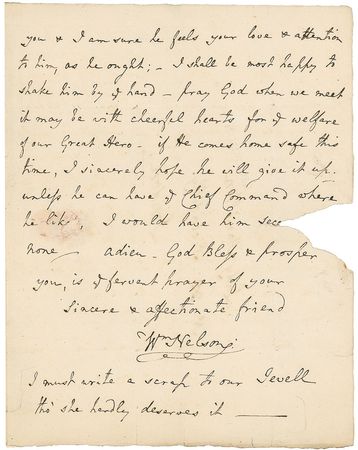 you & I am sure he feels your love & attention
to him, as he ought; - I shall be most happy to
shake him by ye hand - pray God when we meet
it may be with cheerful hearts for ye welfare
of our Great Hero - if He comes home safe this
time, I sincerely hope he will give it up.
unless he can have ye Chief Command where
he likes, I would have him sec
none - adieu. God Bless & prosper
you, is ye fervent prayer of your
Sincere & affectionate friend
Wm Nelson.
I must write a scrap to our Jewell
tho' she hardly deserves it —